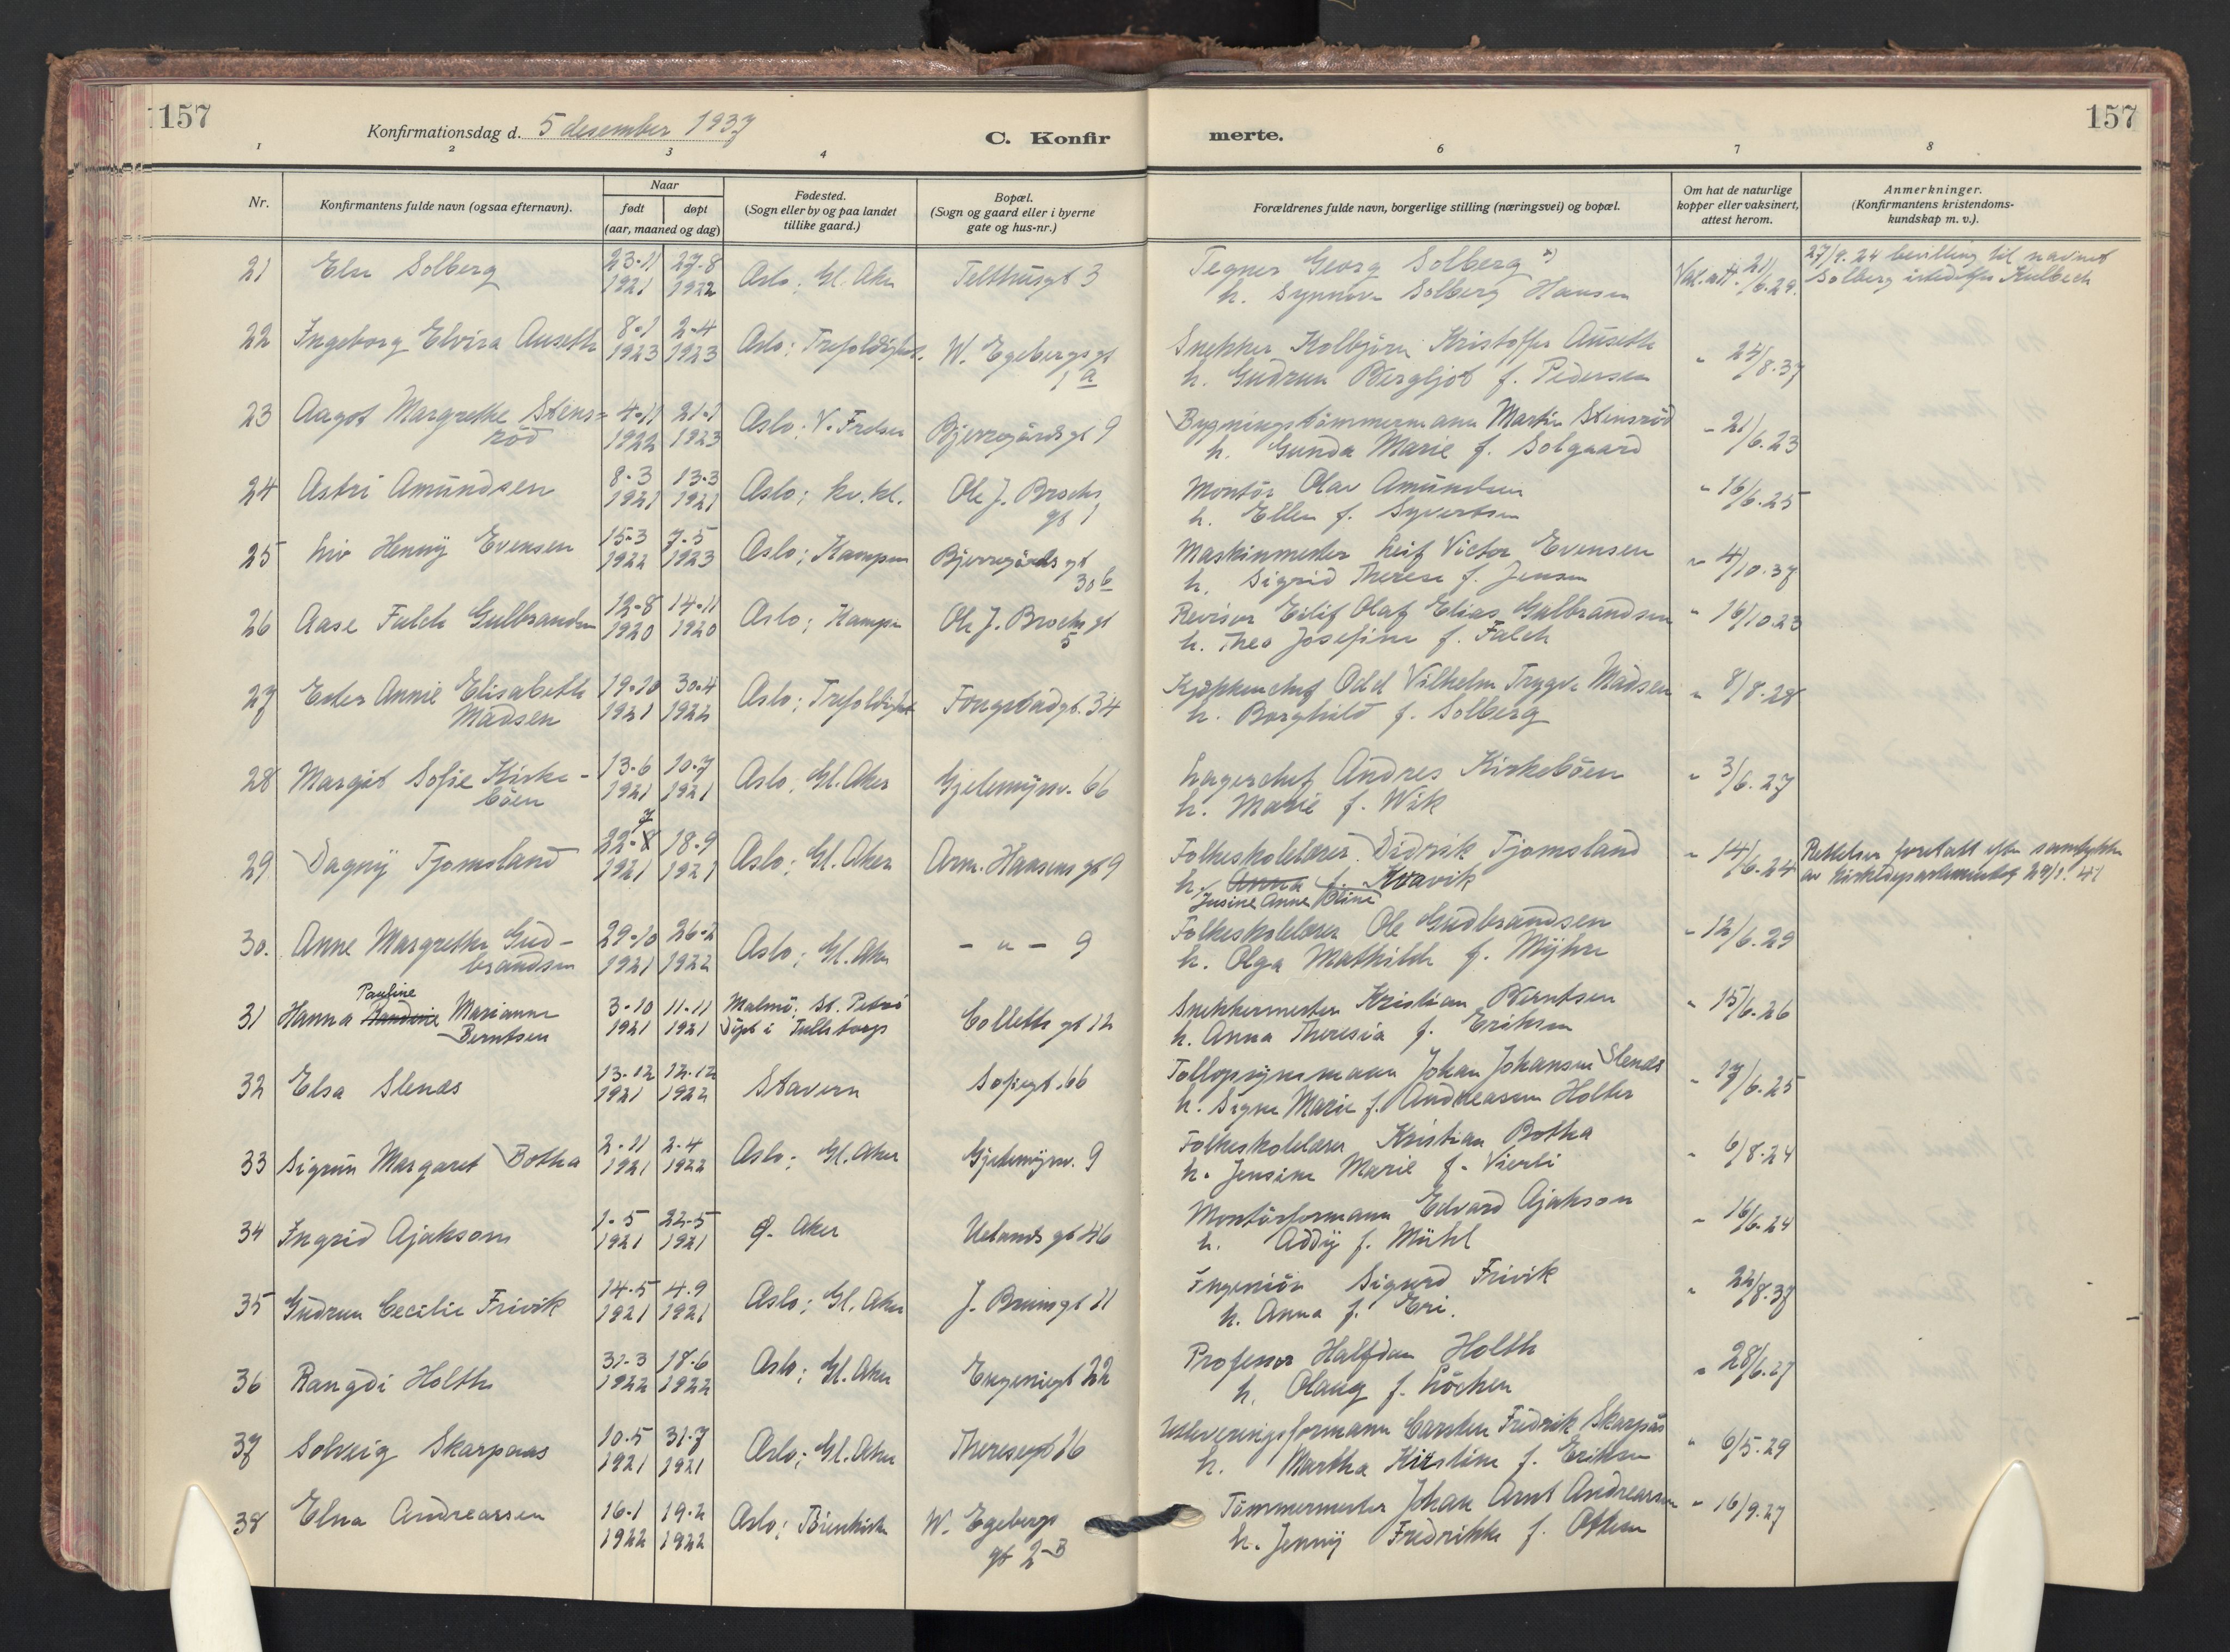 157
Konfirmationsdag d. 5 desember 1937
C. Konfir
merte.
157
1 2 3 4 6 7 8
Nr.
Konfirmantens fulde navn (ogsaa efternavn).
Naar
født døpt
(aar, maaned og dag)
Fødested.
(Sogn eller by og paa landet
tillike gaard.)
Bopæl.
(Sogn og gaard eller i byerne
gate og hus-nr.)
Forældrenes fulde navn, borgerlige stilling (næringsvei) og bopæl.
Om hat de naturlige
kopper eller vaksinert,
attest herom.
Anmerkninger.
(Konfirmantens kristendoms-
kundskap m. v.).
21 Else Solberg 23-11 27-8 Oslo; Gl. Aker Telthusgt 3 Tegner Georg Solberg Vak.att. 21/6.29. 27/9.24 bevilling til navnet
1921 1922 h. Synnøve Solberg Hansen Solberg istedetfor
22 Ingeborg Elvira Auseth 8-1 2-4 Oslo; Trefoldighet. W. Egebergsgt Snekker Kolbjørn Kristoffer Auseth " 24/8.37
1923 1923 1 a h. Gudrun Bergljot f. Pedersen
23 Aagot Margrethe Stens= 4-11 21-1 Oslo; V. Frelser Bjerregårdsgt 9 Bygningstømmermann Martin Stensrød " 21/6.23
rød 1922 1923 h. Gunda Marie f. Solgaard
24 Astri Amundsen 8-3 13-3 Oslo; kv. kl. Ole J. Brochs Montør Olav Amundsen " 16/6.25
1921 1921 gt 1 h. Ellen f. Syvertsen
25 Liv Henny Evensen 15-3 7-5 Oslo; Kampen Bjerregårdsgt Maskinmester Leif Victor Evensen " 4/10.37
1922 1923 30 b h. Sigrid Therese f. Jensen
26 Aase Falch Gulbrandsen 12-8 14-11 Oslo; Kampen Ole J. Brochsgt Revisor Eilif Olaf Elias Gulbrandsen " 16/10.23
1920 1920 5 h. Thea Josefine f. Falch
27 Ester Annie Elisabeth 19-10 30-4 Oslo; Trefoldighet Fougstadgt. 34 Kjøkkenchef Odd Vilhelm Trygve Madsen " 8/8.28
Madsen 1921 1922 h. Borghild f. Solberg
28 Margit Sofie Kirke- 13-6 10-7 Oslo; Gl. Aker Gjetemyrsv. 66 Lagerchef Andres Kirkebøen " 3/6.27
bøen 1921 1921 h. Marie f. Wik
7
29 Dagny Tjomsland 22-8 18-9 Oslo; Gl. Aker Arm. Hansens gt 9 Folkeskolelærer Didrik Tjomsland " 14/6.24 Rettelser foretatt efter samtykke
1921 1921 h. Anna f. Kvavik av Kirkedepartementet 29/1.41
Jusine Anne Oline
30. Anne Margrethe Gud- 29-10 26-2 Oslo; Gl. Aker - " - 9 Folkeskolelærer Ole Gudbrandsen " 12/6.29
brandsen 1921 1922 h. Olga Mathilde f. Myhre
Pauline
31 Hanna Marianne 3-10 11-11 Malmø; St. Petri Colletts gt 12 Snekkermester Kristian Berntsen " 15/6.26
Berntsen 1921 1921 Døpt i Tullstorp h. Anna Theresia f. Eriksen
32 Elsa Slenes 13-12 12-12 Stavern Sofiegt. 66 Tollopsynsmann Johan Johansen Slenes " 17/6.25
1921 1922 h. Signe Marie f. Andreassen Holter
33 Sigrun Margaret Botha 2-11 2-4 Oslo; Gl. Aker Gjetemyrsv. 9 Folkeskolelærer Kristian Botha " 6/8.24
1921 1922 h. Jensine Marie f. Vierli
34 Ingrid Ajakson 1-5 22-5 Ø. Aker Uelands gt 46 Montørformann Edvard Ajakson " 16/6.24
1921 1921 h. Addy f. Mühl
35 Gudrun Cecilie Frivik 14-5 4.9 Oslo; Gl. Aker J. Bruunsgt 11 Ingeniør Sigurd Frivik " 24/8.37
1921 1921 h. Anna f. Eri.
36 Rangdi Holth 31-3 18-6 Oslo; Gl. Aker Eugeniegt 22 Professor Halfdan Holth " 28/6.27
1922 1922 h. Olaug f. Løchen
37 Solveig Skarpaas 10-5 31-7 Oslo; Gl. Aker Theresesgt 16 Utleveringsformann Carsten Fredrik Skarpås " 6/5.29
1921 1921 h. Martha Kirstine f. Eriksen
38 Elna Andreassen 16-1 19-2 Oslo; Tøienkirken W. Egebergs Tømmermester Johan Arnt Andreassen " 16/9.27
1922 1922 gt 2 B h. Jenny Fredrikke f. Olsen